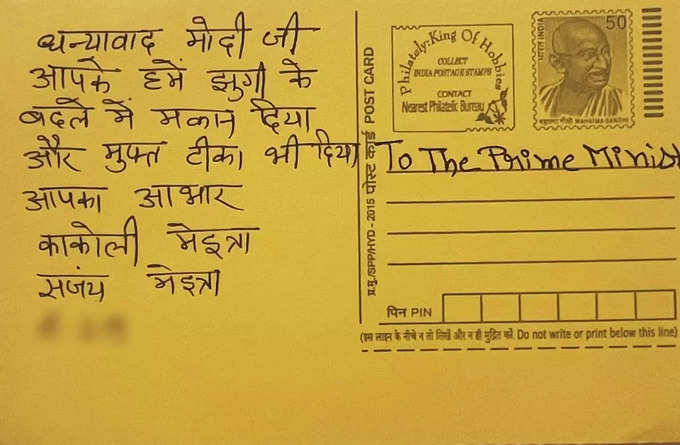 धन्यावाद मोदी जी
आपके हमें झुगी के
बदले में मकान दिया
और मुफ्त टीका भी दिया
आपका आभार
काकोली मेइत्रा
सजंय मेइत्रा
Philately:King Of Hobbies
COLLECT
INDIA POSTAGE STAMPS
CONTACT
Nearest Philatelic Bureau
भारत INDIA
50
महात्मा गाँधी MAHATMA GANDHI
To The Prime Minist
प्र.मु./SPP/HYD - 2015 पोस्ट कार्ड POST CARD
पिन PIN
(इस लाइन के नीचे न तो लिखें और न ही मुद्रित करें. Do not write or print below this line)